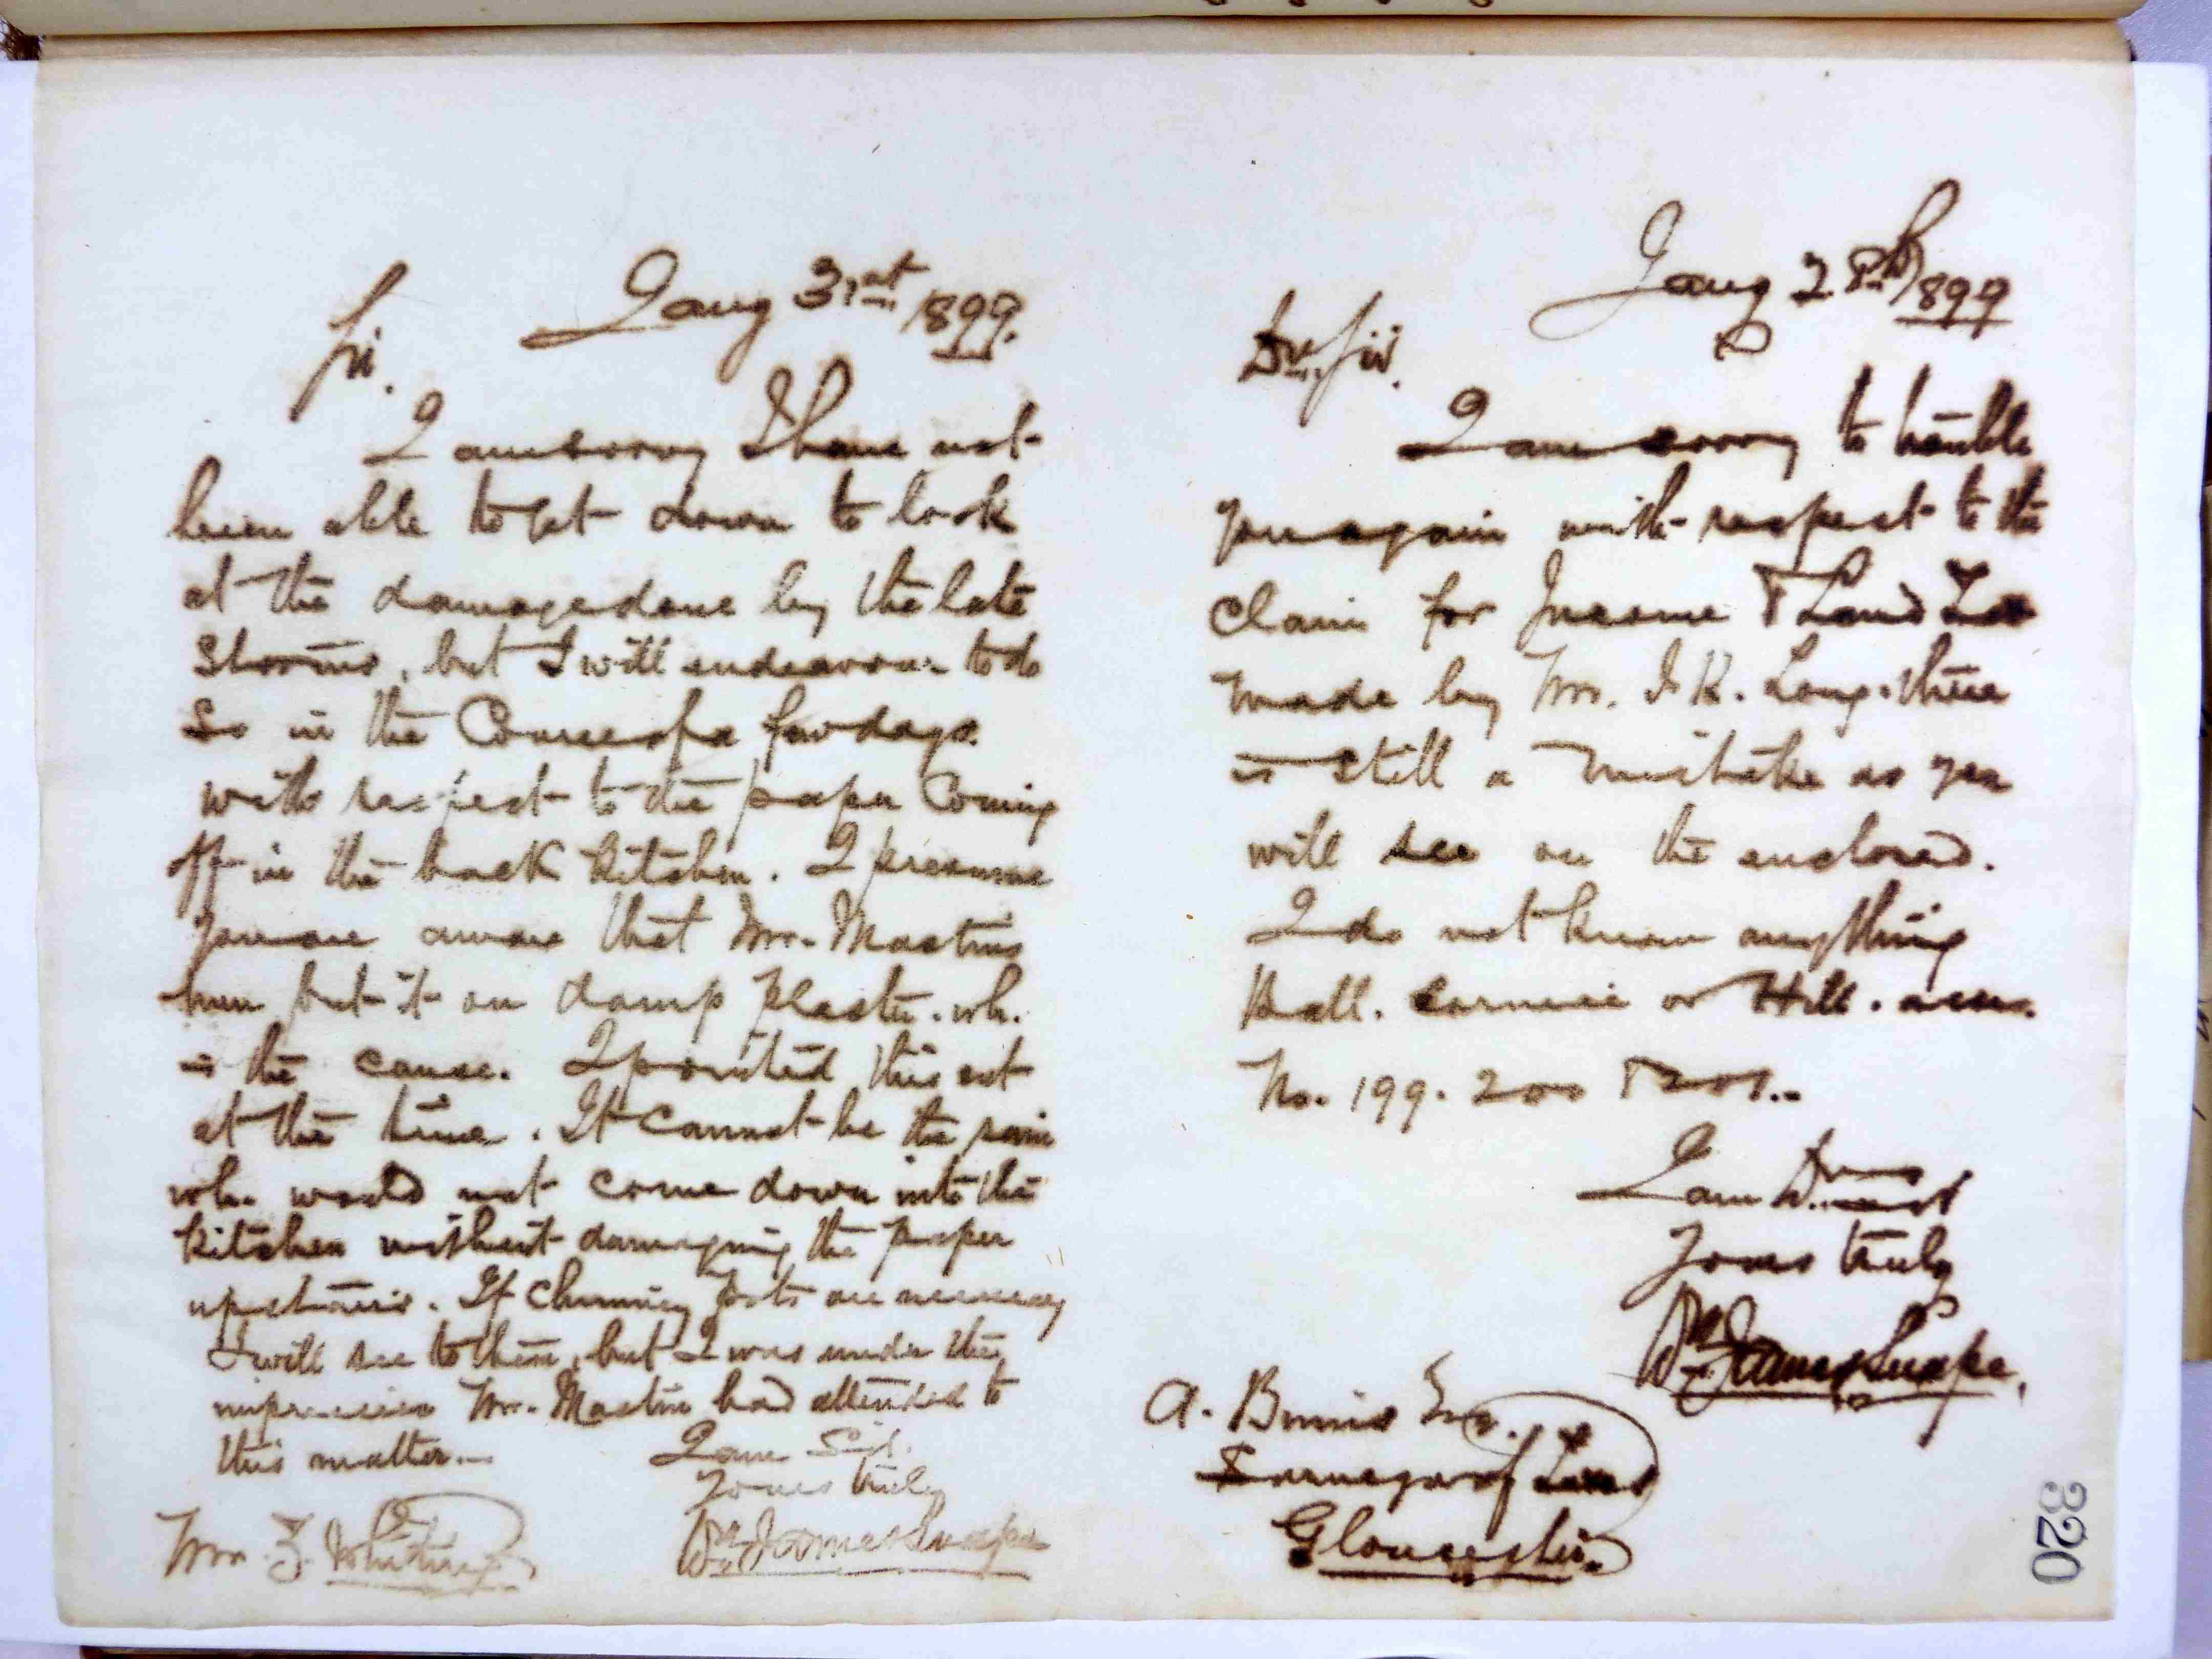 Jany 31st 1899.
Sir.
I am sorry I have not
been able to get down to look
at the damage done by the late
Storms, but I will endeavour to do
So in the Course of a few days.
with respect to the paper Coming
off in the back kitchen. I presume
you are aware that Mr. Mastins
men put it on damp plaster. wh.
is the cause. I pointed this out
at the time. It cannot be the rain
wh. would not come down into the
kitchen without damaging the paper
upstairs. If Chimney pots are necessary
I will see to them, but I was under the
impression Mr. Mastin had attended to
this matter.
I am Sir.
Yours truly
Wm. James Snape
Mr. Z. Whiting
Jany 28th 1899
Dr. Sir.
I am sorry to trouble
you again with respect to the
Claim for Income & Land Tax
made by Mr. J. K. Long. there
is still a mistake as you
will see on the enclosed.
I do not know anything
Hall. or Hill.
No. 199. 200 & 201.
I am Dr. Sir
Yours truly
Wm. James Snape.
A. Binnis Esq.
Surveyor of Taxes
Gloucester.
320